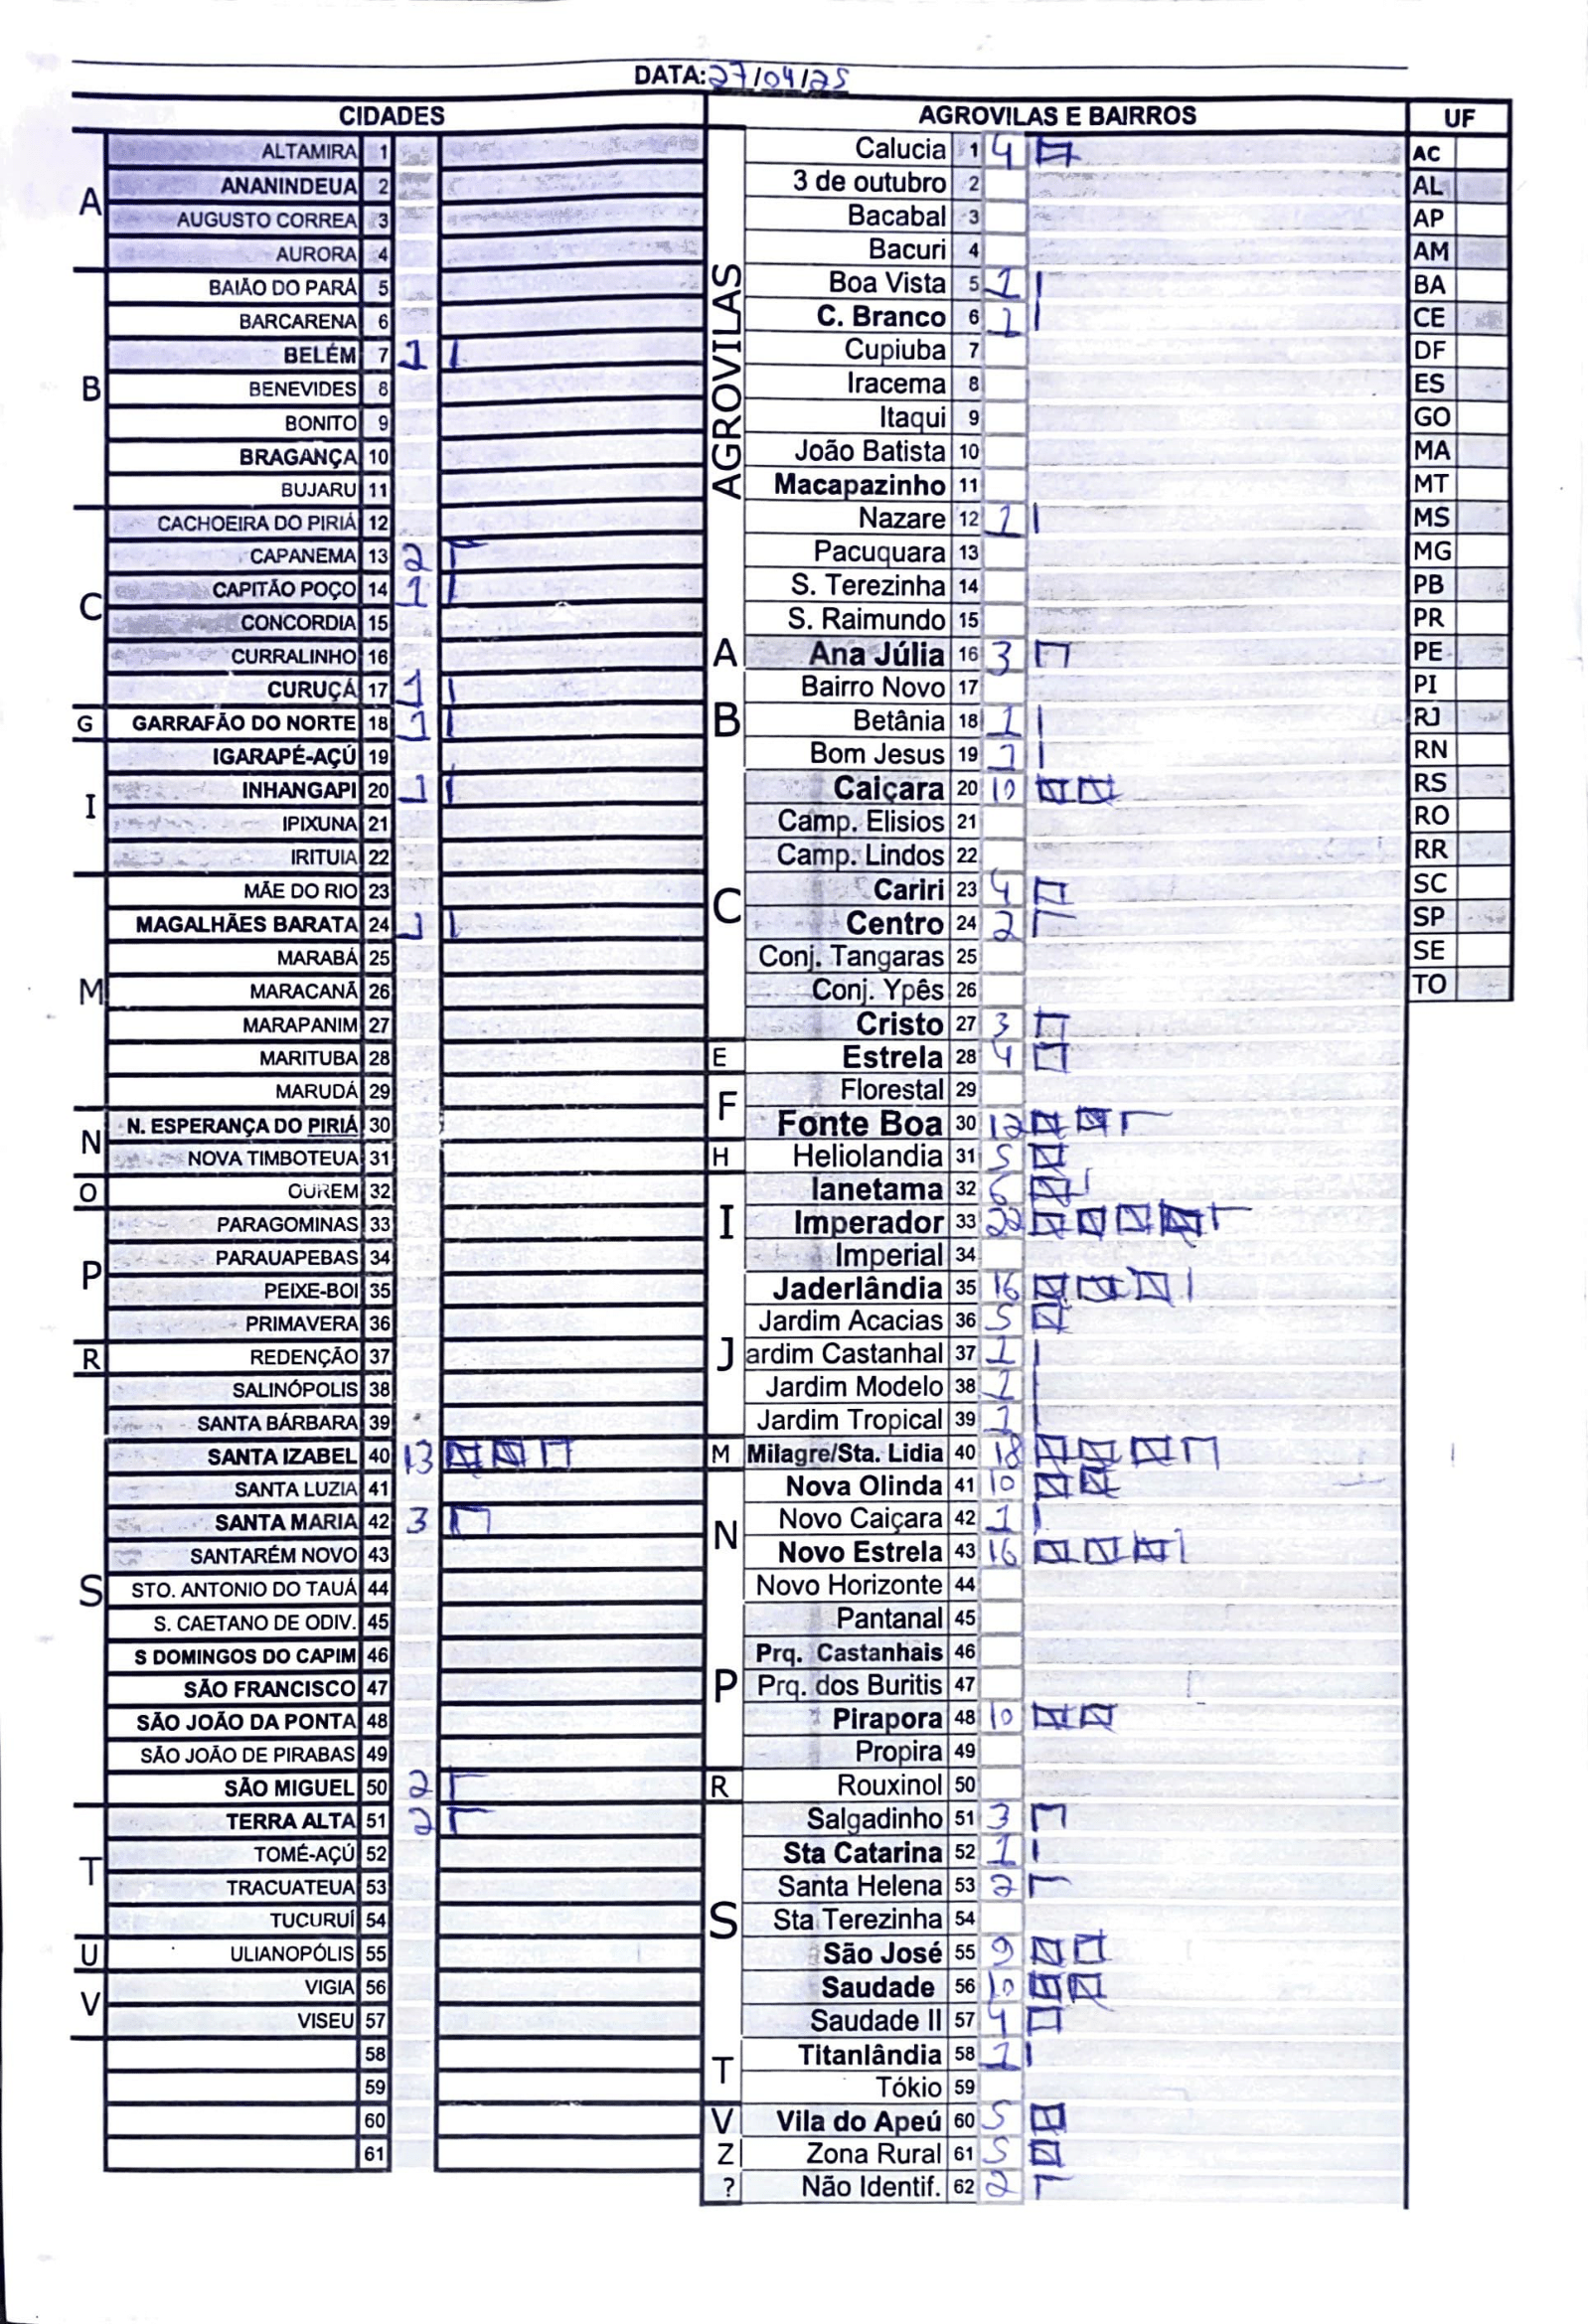 DATA: 27/04/25
CIDADES
A
ALTAMIRA 1
ANANINDEUA 2
AUGUSTO CORREA 3
AURORA 4
B
BAIÃO DO PARÁ 5
BARCARENA 6
BELÉM 7 1
BENEVIDES 8
BONITO 9
BRAGANÇA 10
BUJARU 11
C
CACHOEIRA DO PIRIÁ 12
CAPANEMA 13 2
CAPITÃO POÇO 14 1
CONCORDIA 15
CURRALINHO 16
CURUÇÁ 17 1
G
GARRAFÃO DO NORTE 18 1
I
IGARAPÉ-AÇÚ 19
INHANGAPI 20 1
IPIXUNA 21
IRITUIA 22
M
MÃE DO RIO 23
MAGALHÃES BARATA 24 1
MARABÁ 25
MARACANÃ 26
MARAPANIM 27
MARITUBA 28
MARUDÁ 29
N
N. ESPERANÇA DO PIRIÁ 30
NOVA TIMBOTEUA 31
O
OUREM 32
P
PARAGOMINAS 33
PARAUAPEBAS 34
PEIXE-BOI 35
PRIMAVERA 36
R
REDENÇÃO 37
S
SALINÓPOLIS 38
SANTA BÁRBARA 39
SANTA IZABEL 40 13
SANTA LUZIA 41
SANTA MARIA 42 3
SANTARÉM NOVO 43
STO. ANTONIO DO TAUÁ 44
S. CAETANO DE ODIV. 45
S DOMINGOS DO CAPIM 46
SÃO FRANCISCO 47
SÃO JOÃO DA PONTA 48
SÃO JOÃO DE PIRABAS 49
SÃO MIGUEL 50 2
T
TERRA ALTA 51 2
TOMÉ-AÇÚ 52
TRACUATEUA 53
TUCURUÍ 54
U
ULIANOPÓLIS 55
V
VIGIA 56
VISEU 57
58
59
60
61
AGROVILAS E BAIRROS
AGROVILAS
Calucia 1 4
3 de outubro 2
Bacabal 3
Bacuri 4
Boa Vista 5 1
C. Branco 6 1
Cupiuba 7
Iracema 8
Itaqui 9
João Batista 10
Macapazinho 11
Nazare 12 1
Pacuquara 13
S. Terezinha 14
S. Raimundo 15
A
Ana Júlia 16 3
B
Bairro Novo 17
Betânia 18 1
Bom Jesus 19 1
C
Caiçara 20 10
Camp. Elisios 21
Camp. Lindos 22
Cariri 23 4
Centro 24 2
Conj. Tangaras 25
Conj. Ypês 26
Cristo 27 3
E
Estrela 28 4
F
Florestal 29
Fonte Boa 30 12
H
Heliolandia 31 5
I
Ianetama 32 6
Imperador 33 22
Imperial 34
J
Jaderlândia 35 16
Jardim Acacias 36 5
ardim Castanhal 37 1
Jardim Modelo 38 1
Jardim Tropical 39 1
M
Milagre/Sta. Lidia 40 18
N
Nova Olinda 41 10
Novo Caiçara 42 1
Novo Estrela 43 16
Novo Horizonte 44
P
Pantanal 45
Prq. Castanhais 46
Prq. dos Buritis 47
Pirapora 48 10
Propira 49
R
Rouxinol 50
S
Salgadinho 51 3
Sta Catarina 52 1
Santa Helena 53 2
Sta Terezinha 54
São José 55 9
Saudade 56 10
Saudade II 57 4
T
Titanlândia 58 1
Tókio 59
V
Vila do Apeú 60 5
Z
Zona Rural 61 5
?
Não Identif. 62 2
UF
AC
AL
AP
AM
BA
CE
DF
ES
GO
MA
MT
MS
MG
PB
PR
PE
PI
RJ
RN
RS
RO
RR
SC
SP
SE
TO